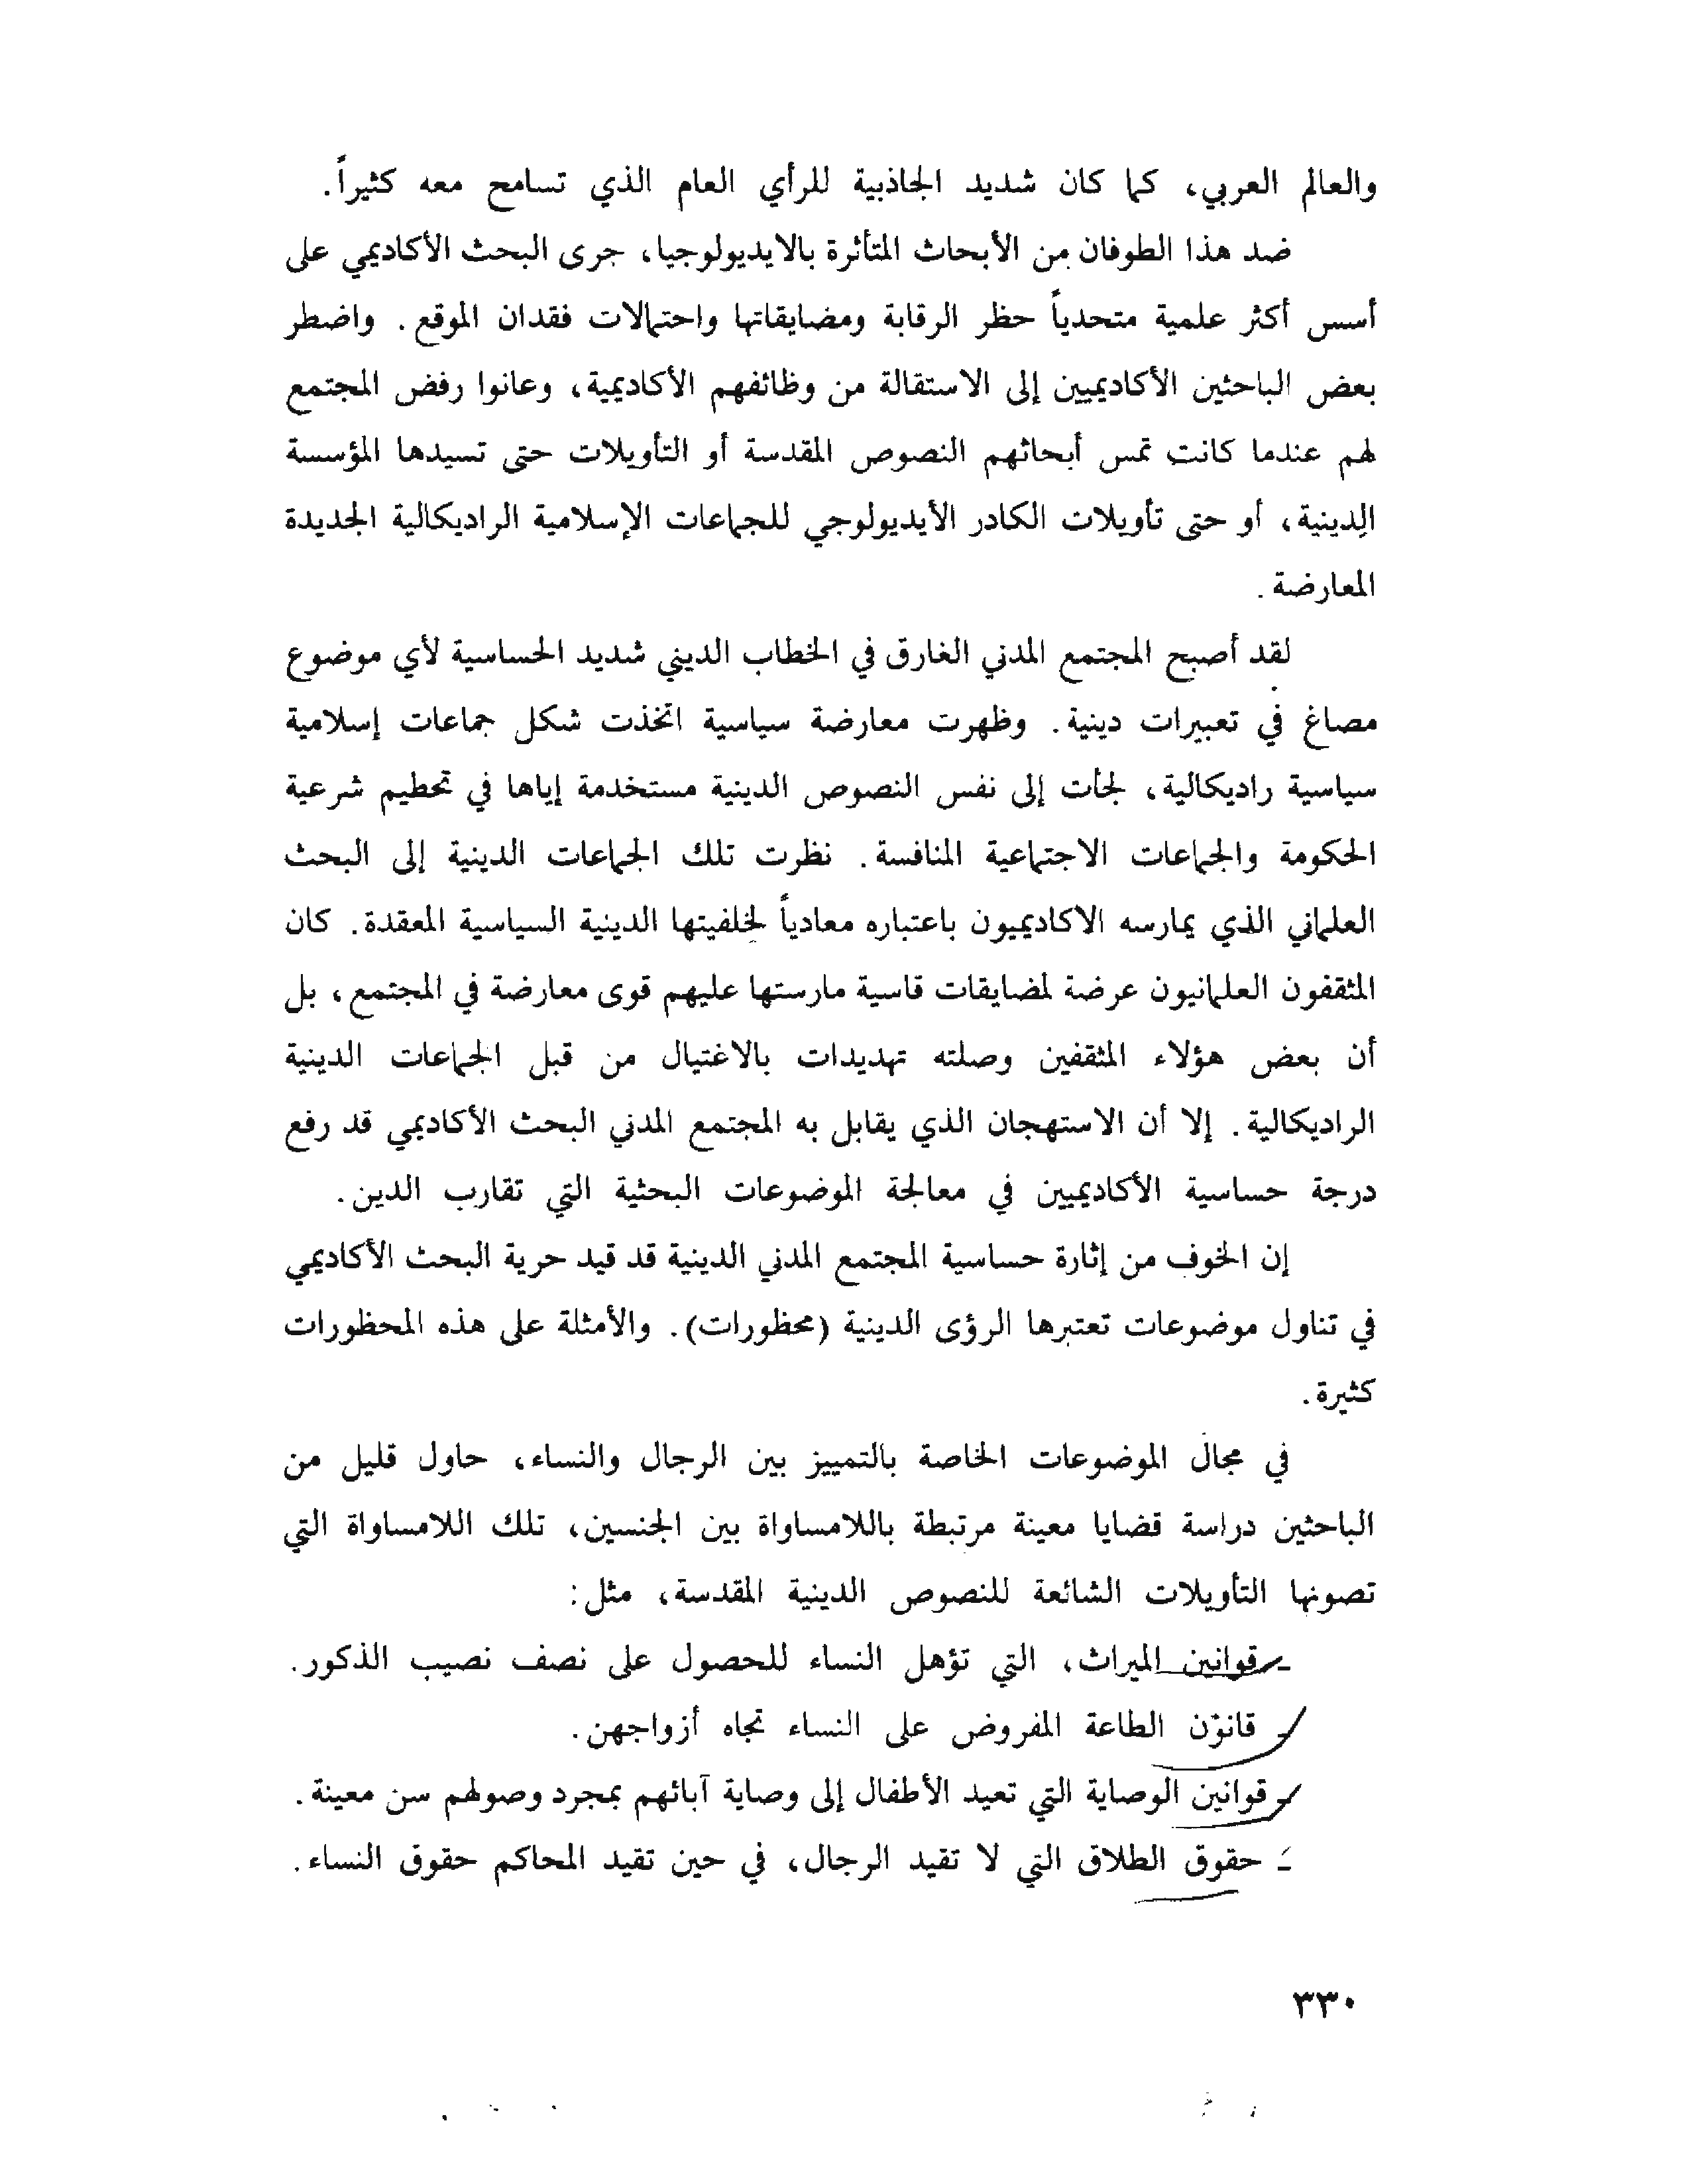 والعالم العربي، كما كان شديد الجاذبية للرأي العام الذي تسامح معه كثيراً.
ضد هذا الطوفان من الأبحاث المتأثرة بالايديولوجيا، جرى البحث الأكاديمي على
أسس أكثر علمية متحدياً حظر الرقابة ومضايقاتها واحتمالات فقدان الموقع. واضطر
بعض الباحثين الأكاديميين إلى الاستقالة من وظائفهم الأكاديمية، وعانوا رفض المجتمع
لهم عندما كانت تمس أبحاثهم النصوص المقدسة أو التأويلات حتى تسيدها المؤسسة
الدينية، أو حتى تأويلات الكادر الأيديولوجي للجماعات الإسلامية الراديكالية الجديدة
المعارضة.
لقد أصبح المجتمع المدني الغارق في الخطاب الديني شديد الحساسية لأي موضوع
مصاغ في تعبيرات دينية. وظهرت معارضة سياسية اتخذت شكل جماعات إسلامية
سياسية راديكالية، لجأت إلى نفس النصوص الدينية مستخدمة إياها في تحطيم شرعية
الحكومة والجماعات الاجتماعية المنافسة. نظرت تلك الجماعات الدينية إلى البحث
العلماني الذي يمارسه الاكاديميون باعتباره معادياً لخلفيتها الدينية السياسية المعقدة. كان
المثقفون العلمانيون عرضة لمضايقات قاسية مارستها عليهم قوى معارضة في المجتمع، بل
أن بعض هؤلاء المثقفين وصلته تهديدات بالاغتيال من قبل الجماعات الدينية
الراديكالية. إلا أن الاستهجان الذي يقابل به المجتمع المدني البحث الأكاديمي قد رفع
درجة حساسية الأكاديميين في معالجة الموضوعات البحثية التي تقارب الدين.
إن الخوف من إثارة حساسية المجتمع المدني الدينية قد قيد حرية البحث الأكاديمي
في تناول موضوعات تعتبرها الرؤى الدينية (محظورات). والأمثلة على هذه المحظورات
كثيرة.
في مجال الموضوعات الخاصة بالتمييز بين الرجال والنساء، حاول قليل من
الباحثين دراسة قضايا معينة مرتبطة باللامساواة بين الجنسين، تلك اللامساواة التي
تصونها التأويلات الشائعة للنصوص الدينية المقدسة، مثل:
ـ قوانين الميراث، التي تؤهل النساء للحصول على نصف نصيب الذكور.
ـ قانون الطاعة المفروض على النساء تجاه أزواجهن.
ـ قوانين الوصاية التي تعيد الأطفال إلى وصاية آبائهم بمجرد وصولهم سن معينة.
ـ حقوق الطلاق التي لا تقيد الرجال، في حين تقيد المحاكم حقوق النساء.
٣٣٠